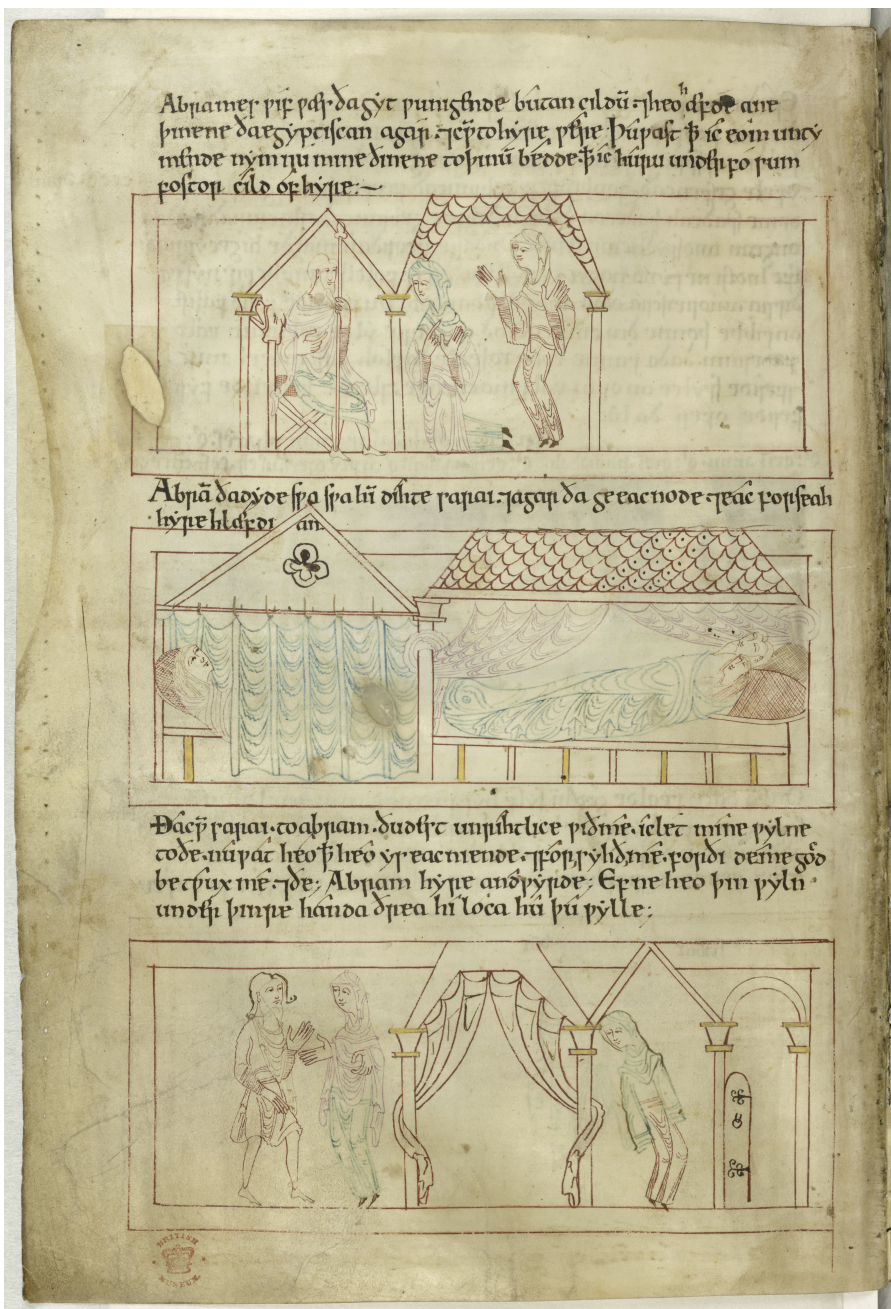 Abrames ƿif ƿæs ða gyt ƿunigende butan cildũ. ⁊ heo hæfde ane
þinene ða egyptiscan agar. ⁊ cƿ̃ to hyre ƿere þu ƿast ꝥ ic eom unty
mende nym nu mine ðinene to þinũ bedde. ꝥ ic huru underfo sum
fostor cild of hyre:~
Abrã ða dyde sƿa sƿa hi dihte sarai. ⁊ agar ða geeacnode. ⁊ eac forseah
hyre hlæfdi an
Ða cƿ̃ sarai. to abram. ðu dest unrihtlice ƿið me. ic let mine ƿylne
to ðe. nu ƿat heo ꝥ heo ys eacniende. ⁊ forsyhð me. for ði deme god
betƿux me. ⁊ ðe; Abram hyre andƿyrde; Efne heo þin ƿyln
under þinre handa ðrea hi loca hu þu ƿylle;
BRITISH
MUSEUM